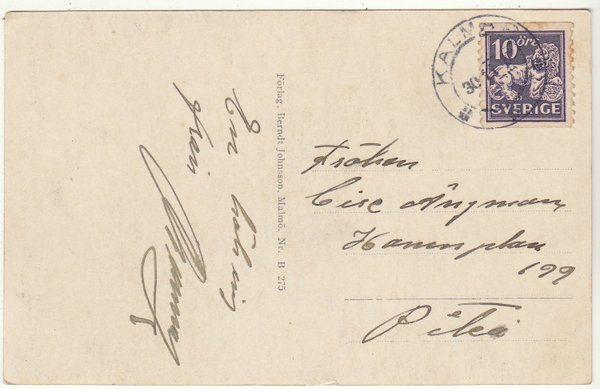 En hälsning
från
Förlag. Berndt Johnsson, Malmö. Nr. B 275
KALMAR
30
10 öre
SVERIGE
Fröken
Ångman,
Hamnplan
199
Piteå